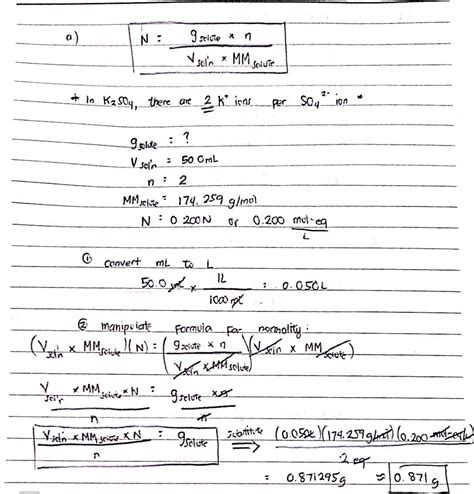 a) N = g solute × n / V sol'n × MM solute
* In K₂SO₄, there are 2 K⁺ ions per SO₄²⁻ ion *
g solute = ?
V sol'n = 50.0mL
n = 2
MM solute = 174.259 g/mol
N = 0.200N or 0.200 mol-eq / L
① convert mL to L
50.0 mL × 1L / 1000 mL = 0.050L
② manipulate formula for normality:
(V sol'n × MM solute)(N) = (g solute × n / V sol'n × MM solute)(V sol'n × MM solute)
V sol'n × MM solute × N / n = g solute × n / n
V sol'n × MM solute × N / n = g solute substitute ⇒ (0.050L)(174.259 g/mol)(0.200 mol-eq/L) / 2 eq
= 0.871295g ≈ 0.871g